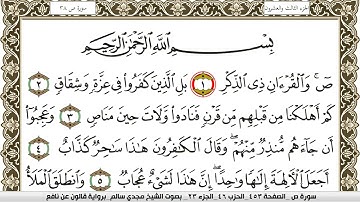 الجزء الثالث والعشرون سورة ص ٣٨
بِسْمِ اللَّهِ الرَّحْمَٰنِ الرَّحِيمِ
صَ وَالْقُرْءَانِ ذِي الذِّكْرِ ١ بَلِ الَّذِينَ كَفَرُوا فِي عِزَّةٍ وَشِقَاقٍ ٢
كَمْ أَهْلَكْنَا مِن قَبْلِهِم مِّن قَرْنٍ فَنَادَوا وَّلَاتَ حِينَ مَنَاصٍ ٣ وَعَجِبُوا
أَن جَاءَهُم مُّنذِرٌ مِّنْهُمْ وَقَالَ الْكَٰفِرُونَ هَٰذَا سَٰحِرٌ كَذَّابٌ ٤
أَجَعَلَ الْآلِهَةَ إِلَٰهًا وَٰحِدًا إِنَّ هَٰذَا لَشَيْءٌ عُجَابٌ ٥ وَانطَلَقَ الْمَلَأُ
سورة ص . الصفحة ٤٥٣ الحزب ٤٦ الجزء ٢٣ بصوت الشيخ مجدي سالم برواية قالون عن نافع